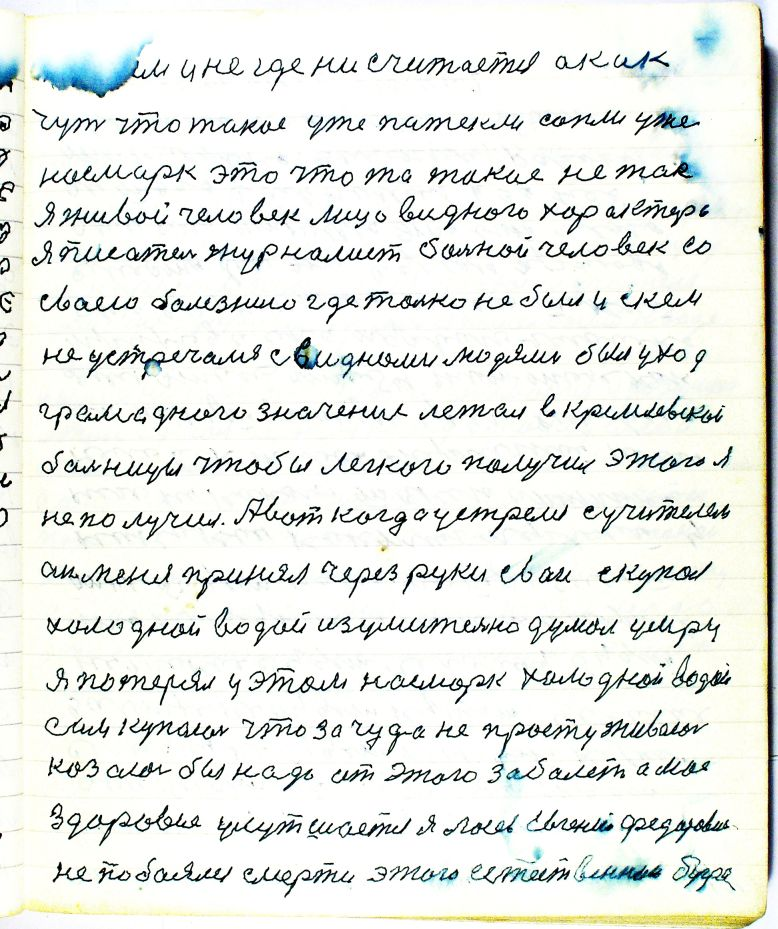 и не где ни считается а как
чут что такое уже патекли сопли уже
насмарк это что та такое не так
я живой человек лицо видного характеръ
я писател журналист болной человек со
сваею балезнию где толко не был и скем
не устречался с видными людями был уход
грамадного значения летал в кремлевской
балницы чтобы легкого получил этого я
не получил. А вот когда устрели с учителем
он меня принял через руки сваи скупал
холодной водой изумително думал умру
я потерял у этом насморк холодной водой
сам купался что за чуда не простуживался
козалос бы надо от этого забалеть а мое
здаровие улутшается я Евгений федаровичь
не побаялся смерти этого